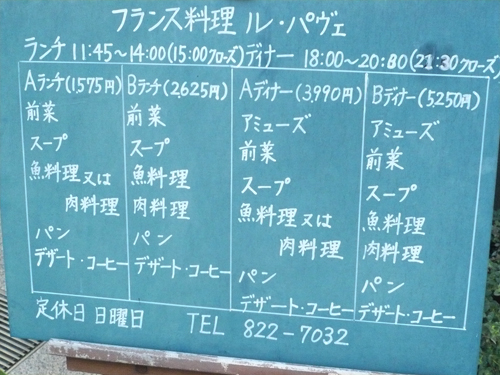 フランス料理 ル・パヴェ
ランチ 11:45～14:00(15:00クローズ)ディナー 18:00～20:30(21:30クローズ)
Aランチ(1,575円)
前菜
スープ
魚料理又は
肉料理
パン
デザート・コーヒー
Bランチ(2,625円)
前菜
スープ
魚料理
肉料理
パン
デザート・コーヒー
Aディナー(3,990円)
アミューズ
前菜
スープ
魚料理又は
肉料理
パン
デザート・コーヒー
Bディナー(5,250円)
アミューズ
前菜
スープ
魚料理
肉料理
パン
デザート・コーヒー
定休日 日曜日 TEL 822-7032